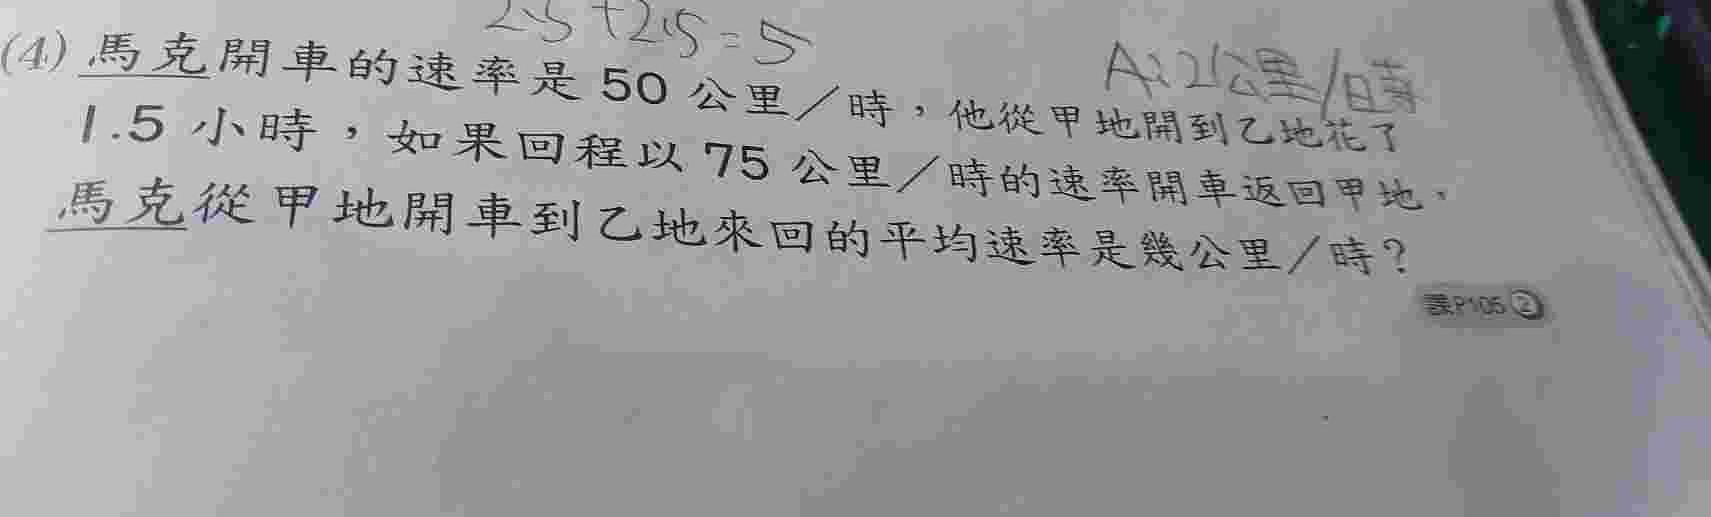 2.5+2.5=5
A:21公里/時
(4) 馬克開車的速率是 50 公里／時，他從甲地開到乙地花了
1.5 小時，如果回程以 75 公里／時的速率開車返回甲地，
馬克從甲地開車到乙地來回的平均速率是幾公里／時？
課P105②